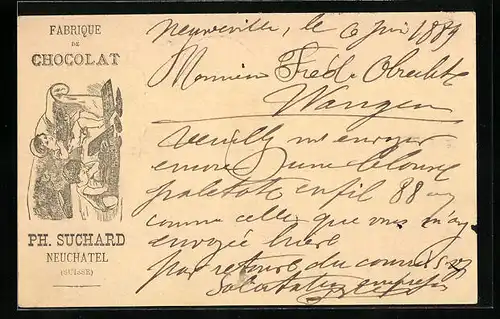 FABRIQUE
DE
CHOCOLAT
PH. SUCHARD
NEUCHATEL
(SUISSE)
Neuveville, le 6 Juin 1889
Monsieur Fréd. Obrecht
Wangen
Veuillez m'envoyer
encore une blouse
paletot en fil 88
comme celle que vous m'
envoyée hier
par retour du courrier
Salutations